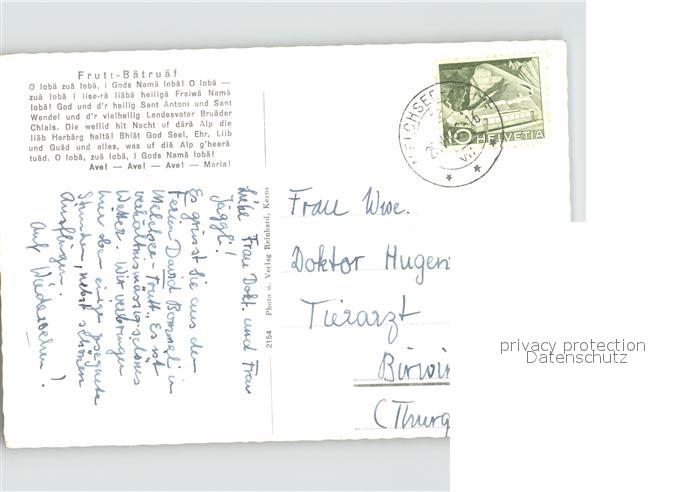 Frutt-Bätruäf
O lobä zuä lobä, i Gods Namä lobä! O lobä —
zuä lobä i lise-rä liäbä heiligä Fraiwä Namä
lobä! God und d'r heilig Sant Antoni und Sant
Wendel und d'r vielheilig Landesvater Bruäder
Chlais. Die wellid hit Nacht uf därä Alp die
liäb Herbärg haltä! Bhiät God Seel, Ehr, Liib
und Guäd und alles, was uf diä Alp g'heerä
tuäd. O lobä, zuä lobä, i Gods Namä lobä!
Ave! — Ave! — Ave! — Maria!
Liebe Frau Dokt. und Frau
Jäggli!
Es grüsst Sie aus den
Ferien David Bommeli in
Melchsee-Frutt. Es ist
verhältnismässig schönes
Wetter. Wir verbringen
hier oben einige gesegnete
Stunden, nebst schönen
Ausflügen.
Auf Wiedersehen!
2154 Photo u. Verlag Reinhard, Kerns
MELCHSEE
VII
10 HELVETIA
Frau Wwe.
Doktor Hugen
Tierarzt
Birwin
(Thurg
privacy protection
Datenschutz